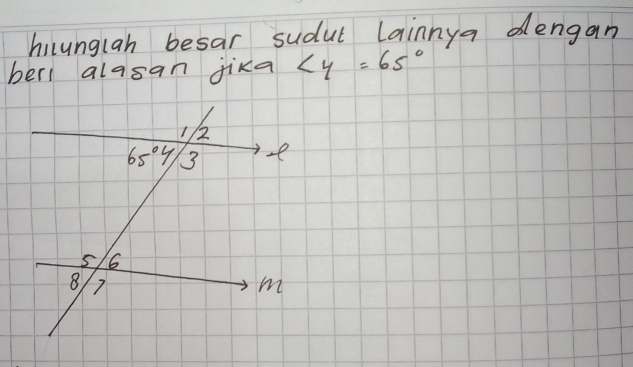 hitunglah besar sudut lainnya dengan
beri alasan jika <4 = 65°
1 2
65° 4 3 l
5 6
8 7 m